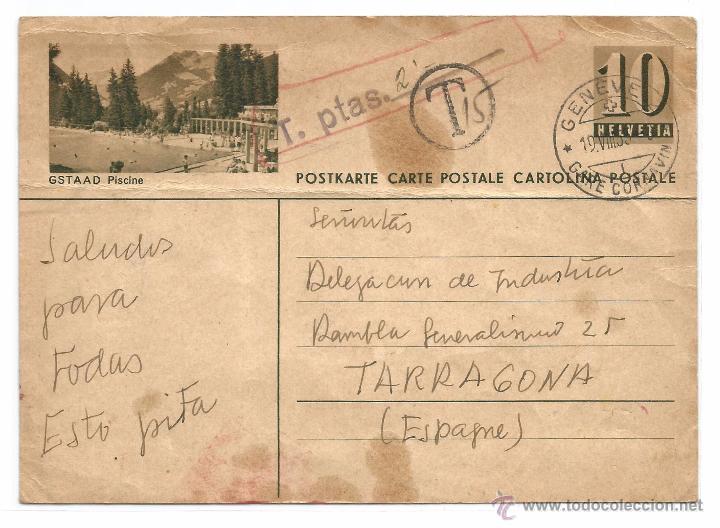 T. ptas. 2'
T 15
10
HELVETIA
GENÈVE
19.VIII.
GARE CORNAVIN
GSTAAD Piscine
POSTKARTE CARTE POSTALE CARTOLINA POSTALE
Saludos
para
Todas
Esto pita
Señoritas
Delegacion de Industria
Rambla Generalisimo 25
TARRAGONA
(Espagne)
www.todocoleccion.net